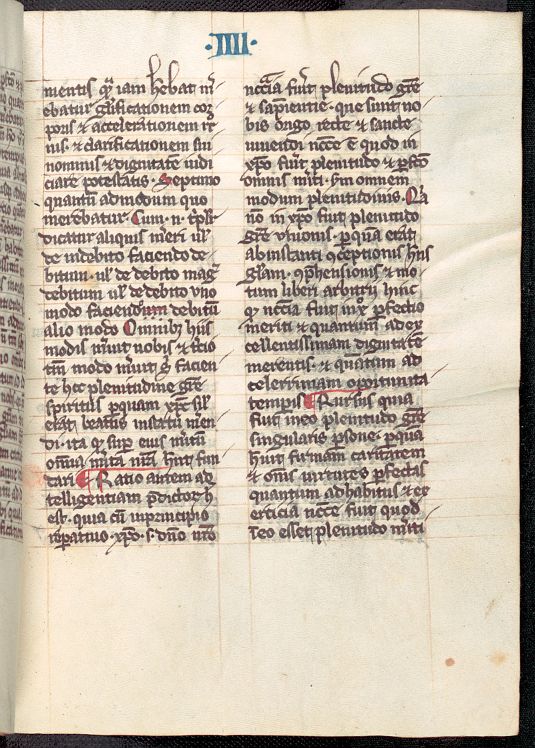 ·IIII·
mentis qͥ iam hēbat m̄
ebatur glīficationem cor
poris & accelerationem
& clarificationem sui
nominis & dignitatē iudi
ciarie potestatis. Septimo
quantū ad modum quo
merebatur. Cum. n. tpl̄r
dicatur aliquis mēri ul̄
de indebito faciendo de
bitum. ul̄ de debito maḡ
debitum ul̄ de debito uno
modo faciendum debitū
alio modo Omnibꝰ hiis
modis meruit nobis &
tm̄ modo meruit faciente
te hͦ plenitudine gr̄e
spiritus pquam xp̄c
erat beatus instatu meren
di. ita qͥ suꝑ eius meritū
om̄ia merita nr̄a hn̄t fun
dari ¶ Ratio autem ad
telligentiam p̄dictorꝝ h̄
est. quia cū inprincipio
repatiuo. xp̄o. s. dn̄o nr̄o
nēcc̄ia fūit plenitudo gr̄e
& sapientie. que sunt no
bis origo recte & sancte
uiuendi nc̄ce ē quod in
xp̄o fūit plenitudo & ꝑf̄cō
omnis mēiti. scd̄m omnem
modum plenitudinis. Qia
.n̄. in xp̄o fuit plenitudo
gr̄e unionis. ꝑ quā erat
abinstanti conceptionis h̄ns
gl̄iam. comp̄hensionis & mo
tum liberi arbitrii hinc
qͥ nc̄cia fuit in xp̄o ꝑfectio
meriti & quantum ad ex
cellentissimam dignitatē
merentis. & quantum ad
celerrimam opportunita
tem temporis ¶ Rursus quia
fuit ineo plenitudo gr̄e
singularis ꝑsone. ꝑ quā
huit firmam caritatem
& om̄s uirtutes ꝑfectas
quantum adhabitus & ex
ercicia nc̄ce fuit quod
ī eo esset plenitudo mēiti